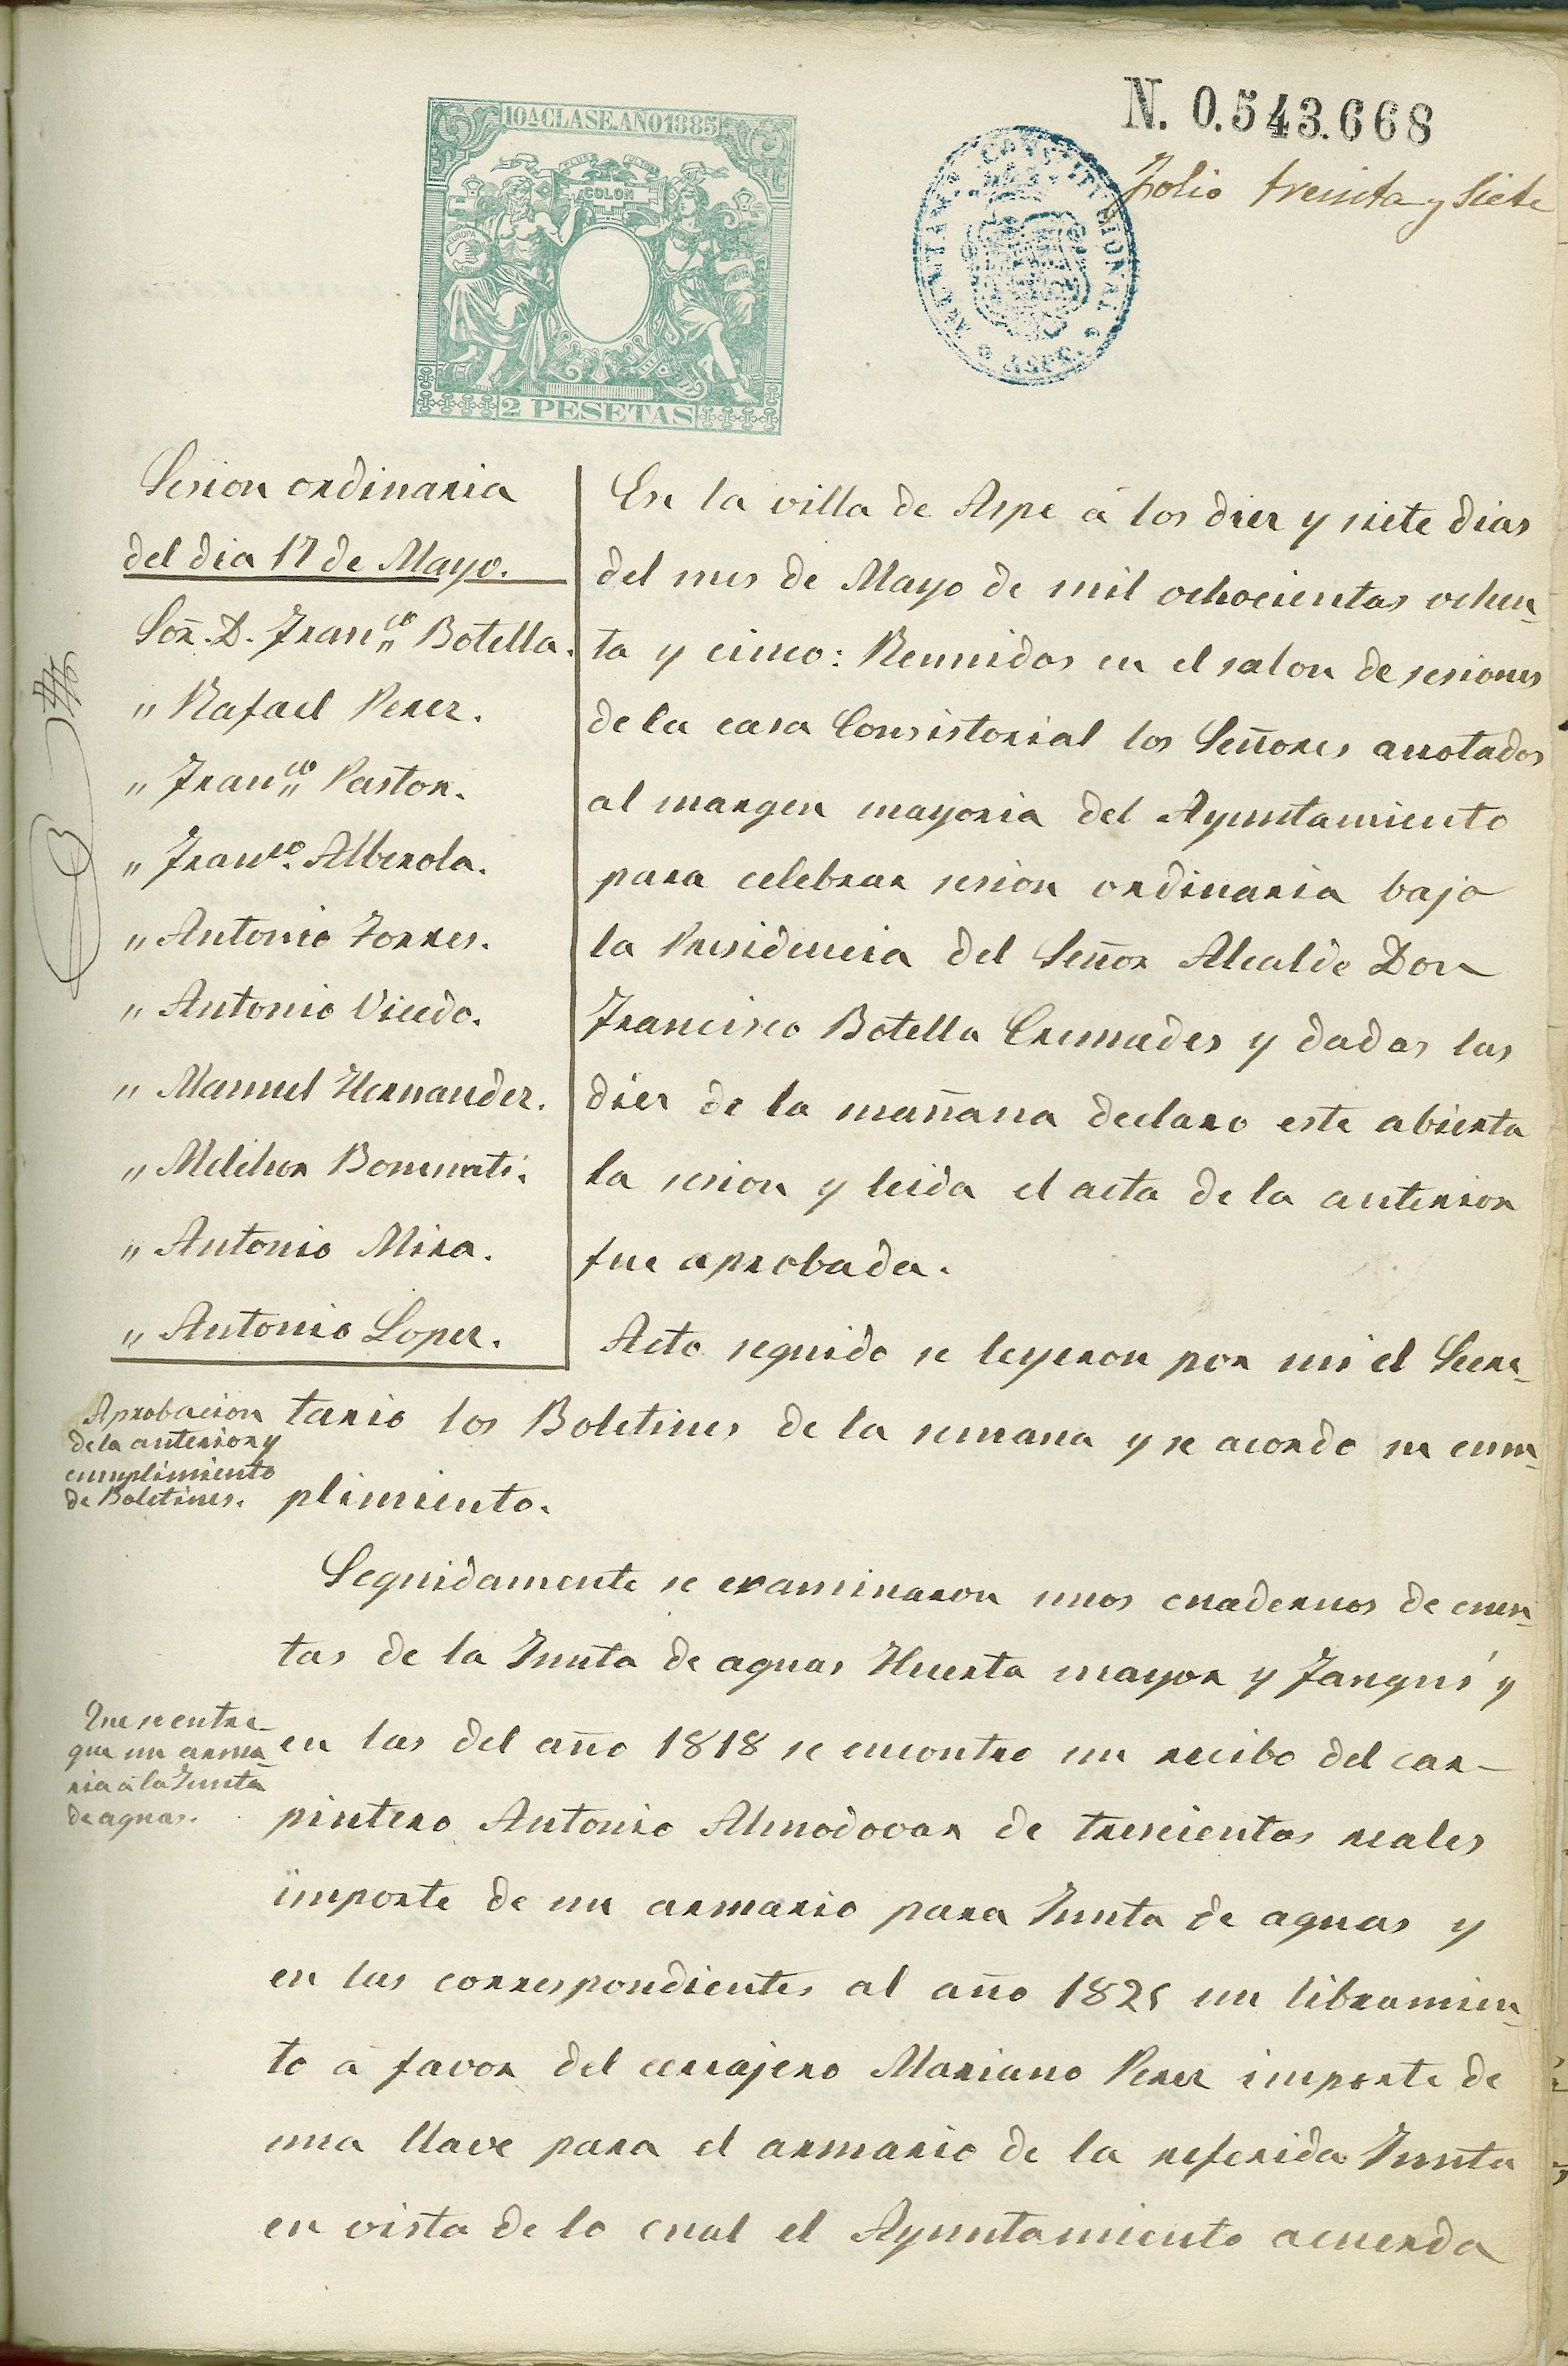 N. 0.543.668
Folio treinta y Siete
10ª CLASE. AÑO 1885
PLUS ULTRA
COLON
EUROPA
2 PESETAS
AYUNTAMIENTO CONSTITUCIONAL
* ASPE *
Sesion ordinaria
del dia 17 de Mayo.
Sor. D. Franco. Botella.
" Rafael Perez.
" Franco. Pastor.
" Franco. Alberola.
" Antonio Torres.
" Antonio Vicedo.
" Manuel Hernandez.
" Melchor Bonmati.
" Antonio Mira.
" Antonio Lopez.
En la villa de Aspe á los diez y siete dias
del mes de Mayo de mil ochocientos ochen-
ta y cinco: Reunidos en el salon de sesiones
de la casa Consistorial los Señores anotados
al margen mayoria del Ayuntamiento
para celebrar sesion ordinaria bajo
la Presidencia del Señor Alcalde Don
Francisco Botella Cremades y dadas las
diez de la mañana declaro este abierta
la sesion y leida el acta de la anterior
fue aprobada.
Acto seguido se leyeron por mi el Secre-
Aprobacion
de la anterior y
cumplimiento
de Boletines.
tario los Boletines de la semana y se acordo su cum-
plimiento.
Seguidamente se examinaron unos cuadernos de cuen-
tas de la Junta de aguas Huerta mayor y Fanguí y
Que se entre-
gue un arma-
rio á la Junta
de aguas.
en las del año 1818 se encontro un recibo del car-
pintero Antonio Almodovar de trescientos reales
importe de un armario para Junta de aguas y
en las correspondientes al año 1825 un libramien-
to á favor del cerrajero Mariano Perez importe de
una llave para el armario de la referida Junta
en vista de lo cual el Ayuntamiento acuerda